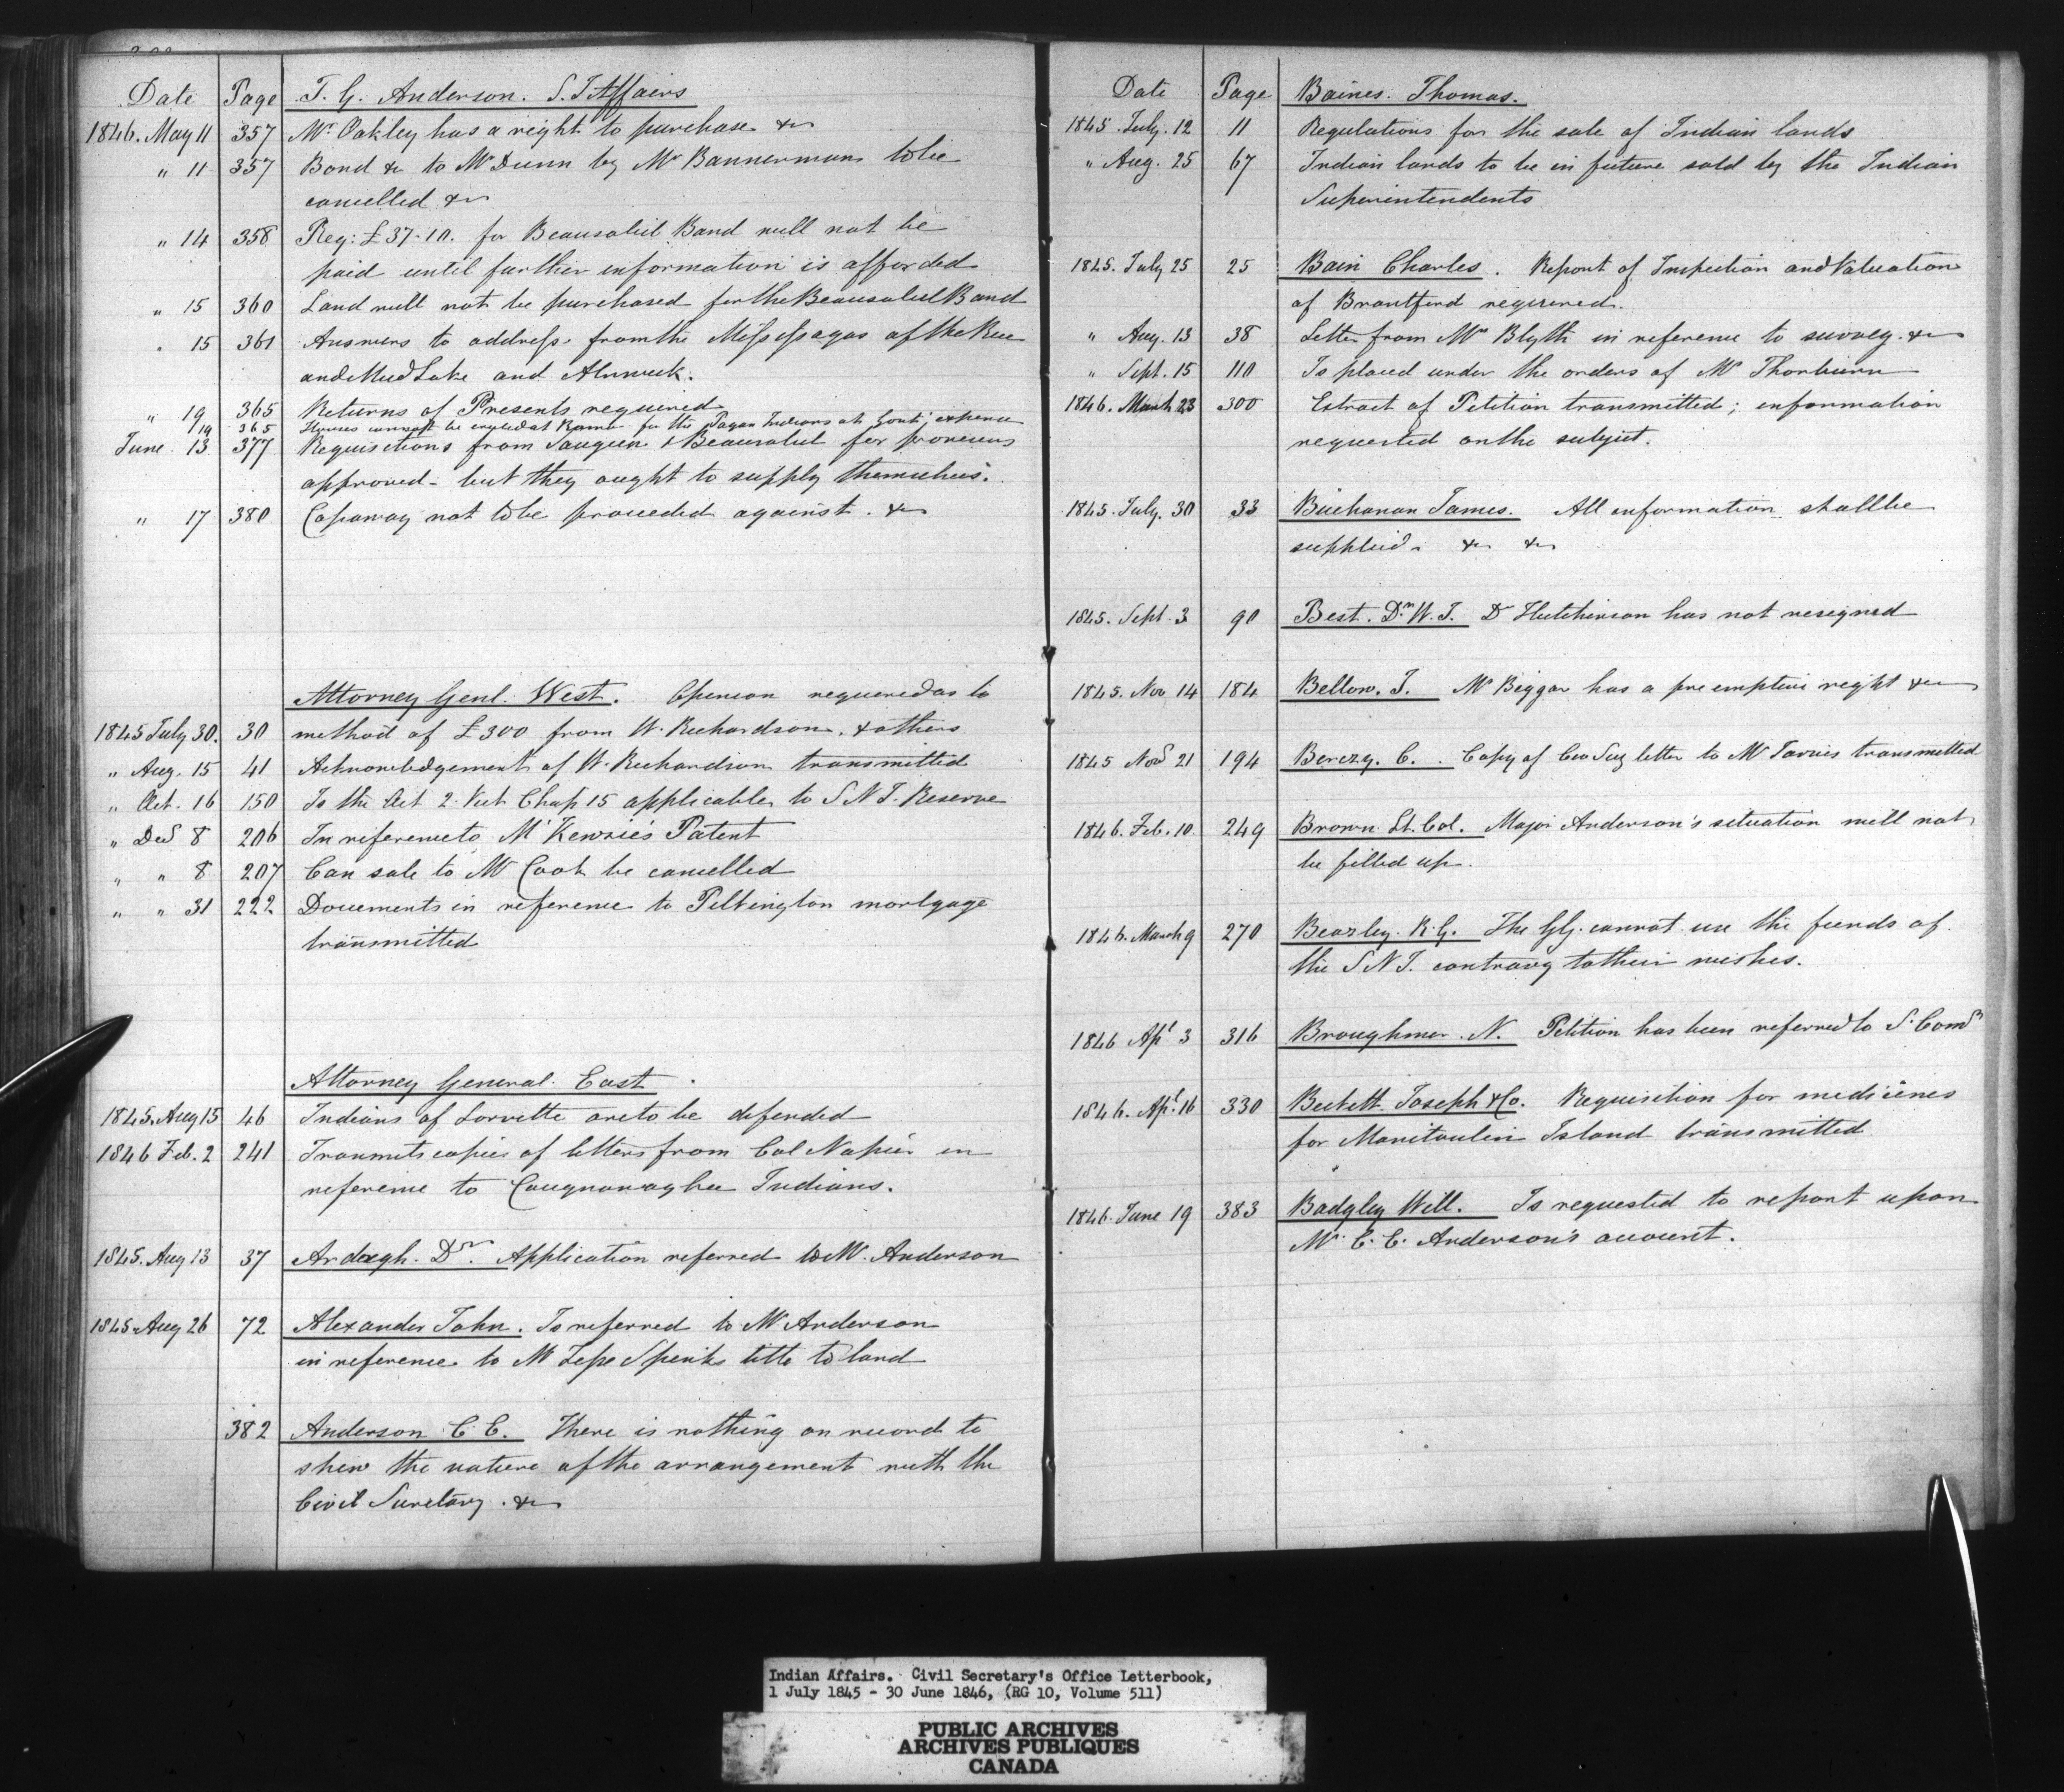 Date Page T. G. Anderson. S. I Affairs
1846. May 11 357 Mr. Oakley has a right to purchase &c
" 11 357 Bond &c to Mr Dunn by Mr Bannerman to be
cancelled &c
" 14 358 Req: £37-10. for Beausoliel Band will not be
paid until further information is afforded
" 15 360 Land will not be purchased for the Beausoliel Band
" 15 361 Answers to address from the Missisagas of the Rice
and Mud Lake and Alnwick.
" 19 365 Returns of Presents required
" 19 365 Houses cannot be erected at Rama for the Pagan Indians at Govt. expense
June 13 377 Requisitions from Saugeen & Beausoliel for provisions
approved - but they ought to supply themselves.
" 17 380 Copaway not to be proceeded against. &c
Attorney Genl. West. Opinion required as to
1845 July 30. 30 method of £300 from W. Richardson, & others
" Aug. 15 41 Acknowledgement of W. Richardson transmitted
" Oct. 16 150 Is the Act 2. Vict Chap 15 applicable to S N I. Reserve
" Decr 8 206 In reference to McKenzie's Patent
" " 8 207 Can sale to Mr Cook be cancelled
" " 31 222 Documents in reference to Pilkington mortgage
transmitted
Attorney General. East.
1845. Aug 15 46 Indians of Lorrette are to be defended
1846 Feb. 2 241 Transmits copies of letters from Col Napier in
reference to Caugnawagha Indians.
1845. Aug 13 37 Ardagh. Dr. Application referred to Mr. Anderson
1845 Aug 26 72 Alexander John. Is referred to Mr Anderson
in reference to Mr title to land
382 Anderson C. E. There is nothing on record to
shew the nature of the arrangement with the
Civil Secretary. &c
Date Page Baines. Thomas.
1845. July. 12 11 Regulations for the sale of Indian lands
" Aug. 25 67 Indian lands to be in future sold by the Indian
Superintendents
1845. July 25 25 Bain Charles. Report of Inspection and Valuation
of Brantford required.
" Aug. 13 38 Letter from Mr Blyth in reference to survey. &c
" Sept. 15 110 Is placed under the orders of Mr Thorburn
1846. March 23 300 Extract of Petition transmitted; information
requested on the subject.
1845. July. 30 33 Buchanan James. All information shall be
supplied. &c &c
1845. Sept. 3 90 Best. Dr. W. J. Dr Hutchinson has not resigned
1845. Nov 14 184 Bellow. J. Mr Biggar has a preemptive right &c
1845 Novr 21 194 Berczy. C. Copy of Civ Secy letter to Mr Jarvis transmitted
1846. Feb. 10. 249 Brown Lt. Col. Major Anderson's situation will not
be filled up.
1846. March 9 270 Beazley. R. G. The G G. cannot use the funds of
the S N I. contrary to their wishes.
1846 Apl 3 316 Broughmer. N. Petition has been referred to S. Comr
1846. Apl. 16 330 Beckett Joseph & Co. Requisition for medicines
for Manitoulin Island transmitted
1846. June 19 383 Badgley Will. Is requested to report upon
Mr. C. E. Anderson's account.
Indian Affairs. Civil Secretary's Office Letterbook,
1 July 1845 - 30 June 1846, (RG 10, Volume 511)
PUBLIC ARCHIVES
ARCHIVES PUBLIQUES
CANADA